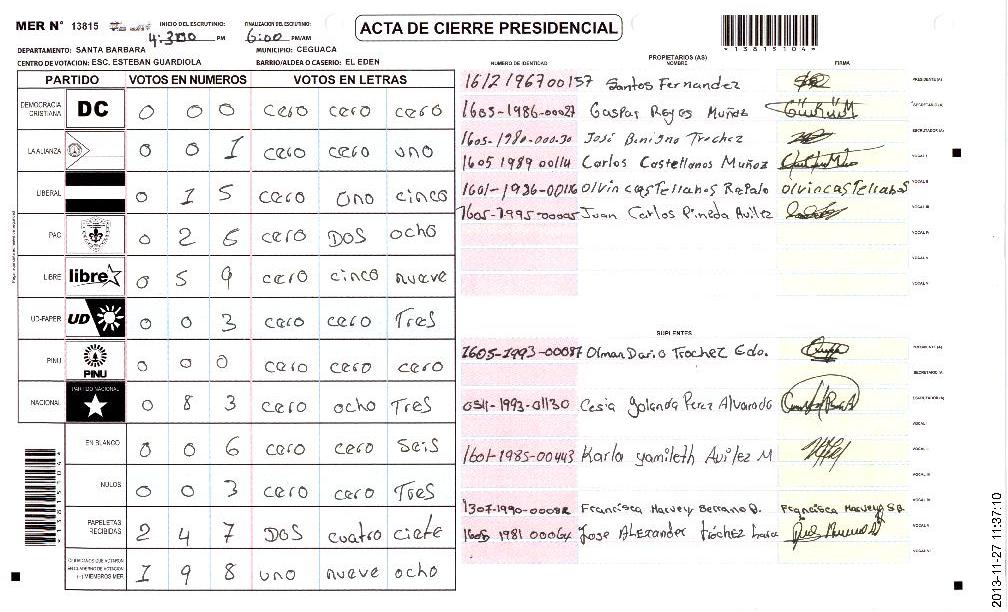 MER N° 13815 INICIO DEL ESCRUTINIO: 4:30 PM FINALIZACION DEL ESCRUTINIO: 6:00 PM/AM
ACTA DE CIERRE PRESIDENCIAL
*13815104*
DEPARTAMENTO: SANTA BARBARA MUNICIPIO: CEGUACA
CENTRO DE VOTACION: ESC. ESTEBAN GUARDIOLA BARRIO/ALDEA O CASERIO: EL EDEN
PARTIDO VOTOS EN NUMEROS VOTOS EN LETRAS
DEMOCRACIA CRISTIANA DC 0 0 0 cero cero cero
LA ALIANZA 0 0 1 cero cero uno
LIBERAL 0 1 5 cero uno cinco
PAC 0 2 6 cero DOS ocho
LIBRE libre 0 5 9 cero cinco nueve
UD-FAPER UD 0 0 3 cero cero Tres
PINU PINU 0 0 0 cero cero cero
NACIONAL PARTIDO NACIONAL 0 8 3 cero ocho Tres
EN BLANCO 0 0 6 cero cero seis
NULOS 0 0 3 cero cero Tres
PAPELETAS RECIBIDAS 2 4 7 DOS cuatro ciete
(+) MIEMBROS MER 1 9 8 uno nueve ocho
PROPIETARIOS (AS)
NUMERO DE IDENTIDAD NOMBRE FIRMA
1612196700157 Santos Fernandez PRESIDENTE (A)
1605-1986-00027 Gaspar Reyes Muñoz SECRETARIO (A)
1605-1980-00030 José Benigno Trochez ESCRUTADOR (A)
1605 1989 00114 Carlos Castellanos Muñoz VOCAL I
1601-1936-00116 olvin castellanos Rapalo olvincastellanos VOCAL II
1605-1995-00005 Juan Carlos Pineda Avilez VOCAL III
VOCAL IV
VOCAL V
VOCAL VI
SUPLENTES
1605-1993-00087 Olman Dario Trochez Edo. PRESIDENTE (A)
SECRETARIO (A)
0511-1993-01130 Cesia Yolanda Perez Alvarado ESCRUTADOR (A)
VOCAL I
1601-1985-00443 Karla yamileth Avilez M VOCAL II
VOCAL III
1307-1990-00082 Francisca Harvey Serrano B. Francisca Harvey S B. VOCAL IV
1605 1981 00064 Jose Alexander Tróchez VOCAL V
VOCAL VI
2013-11-27 11:37:10